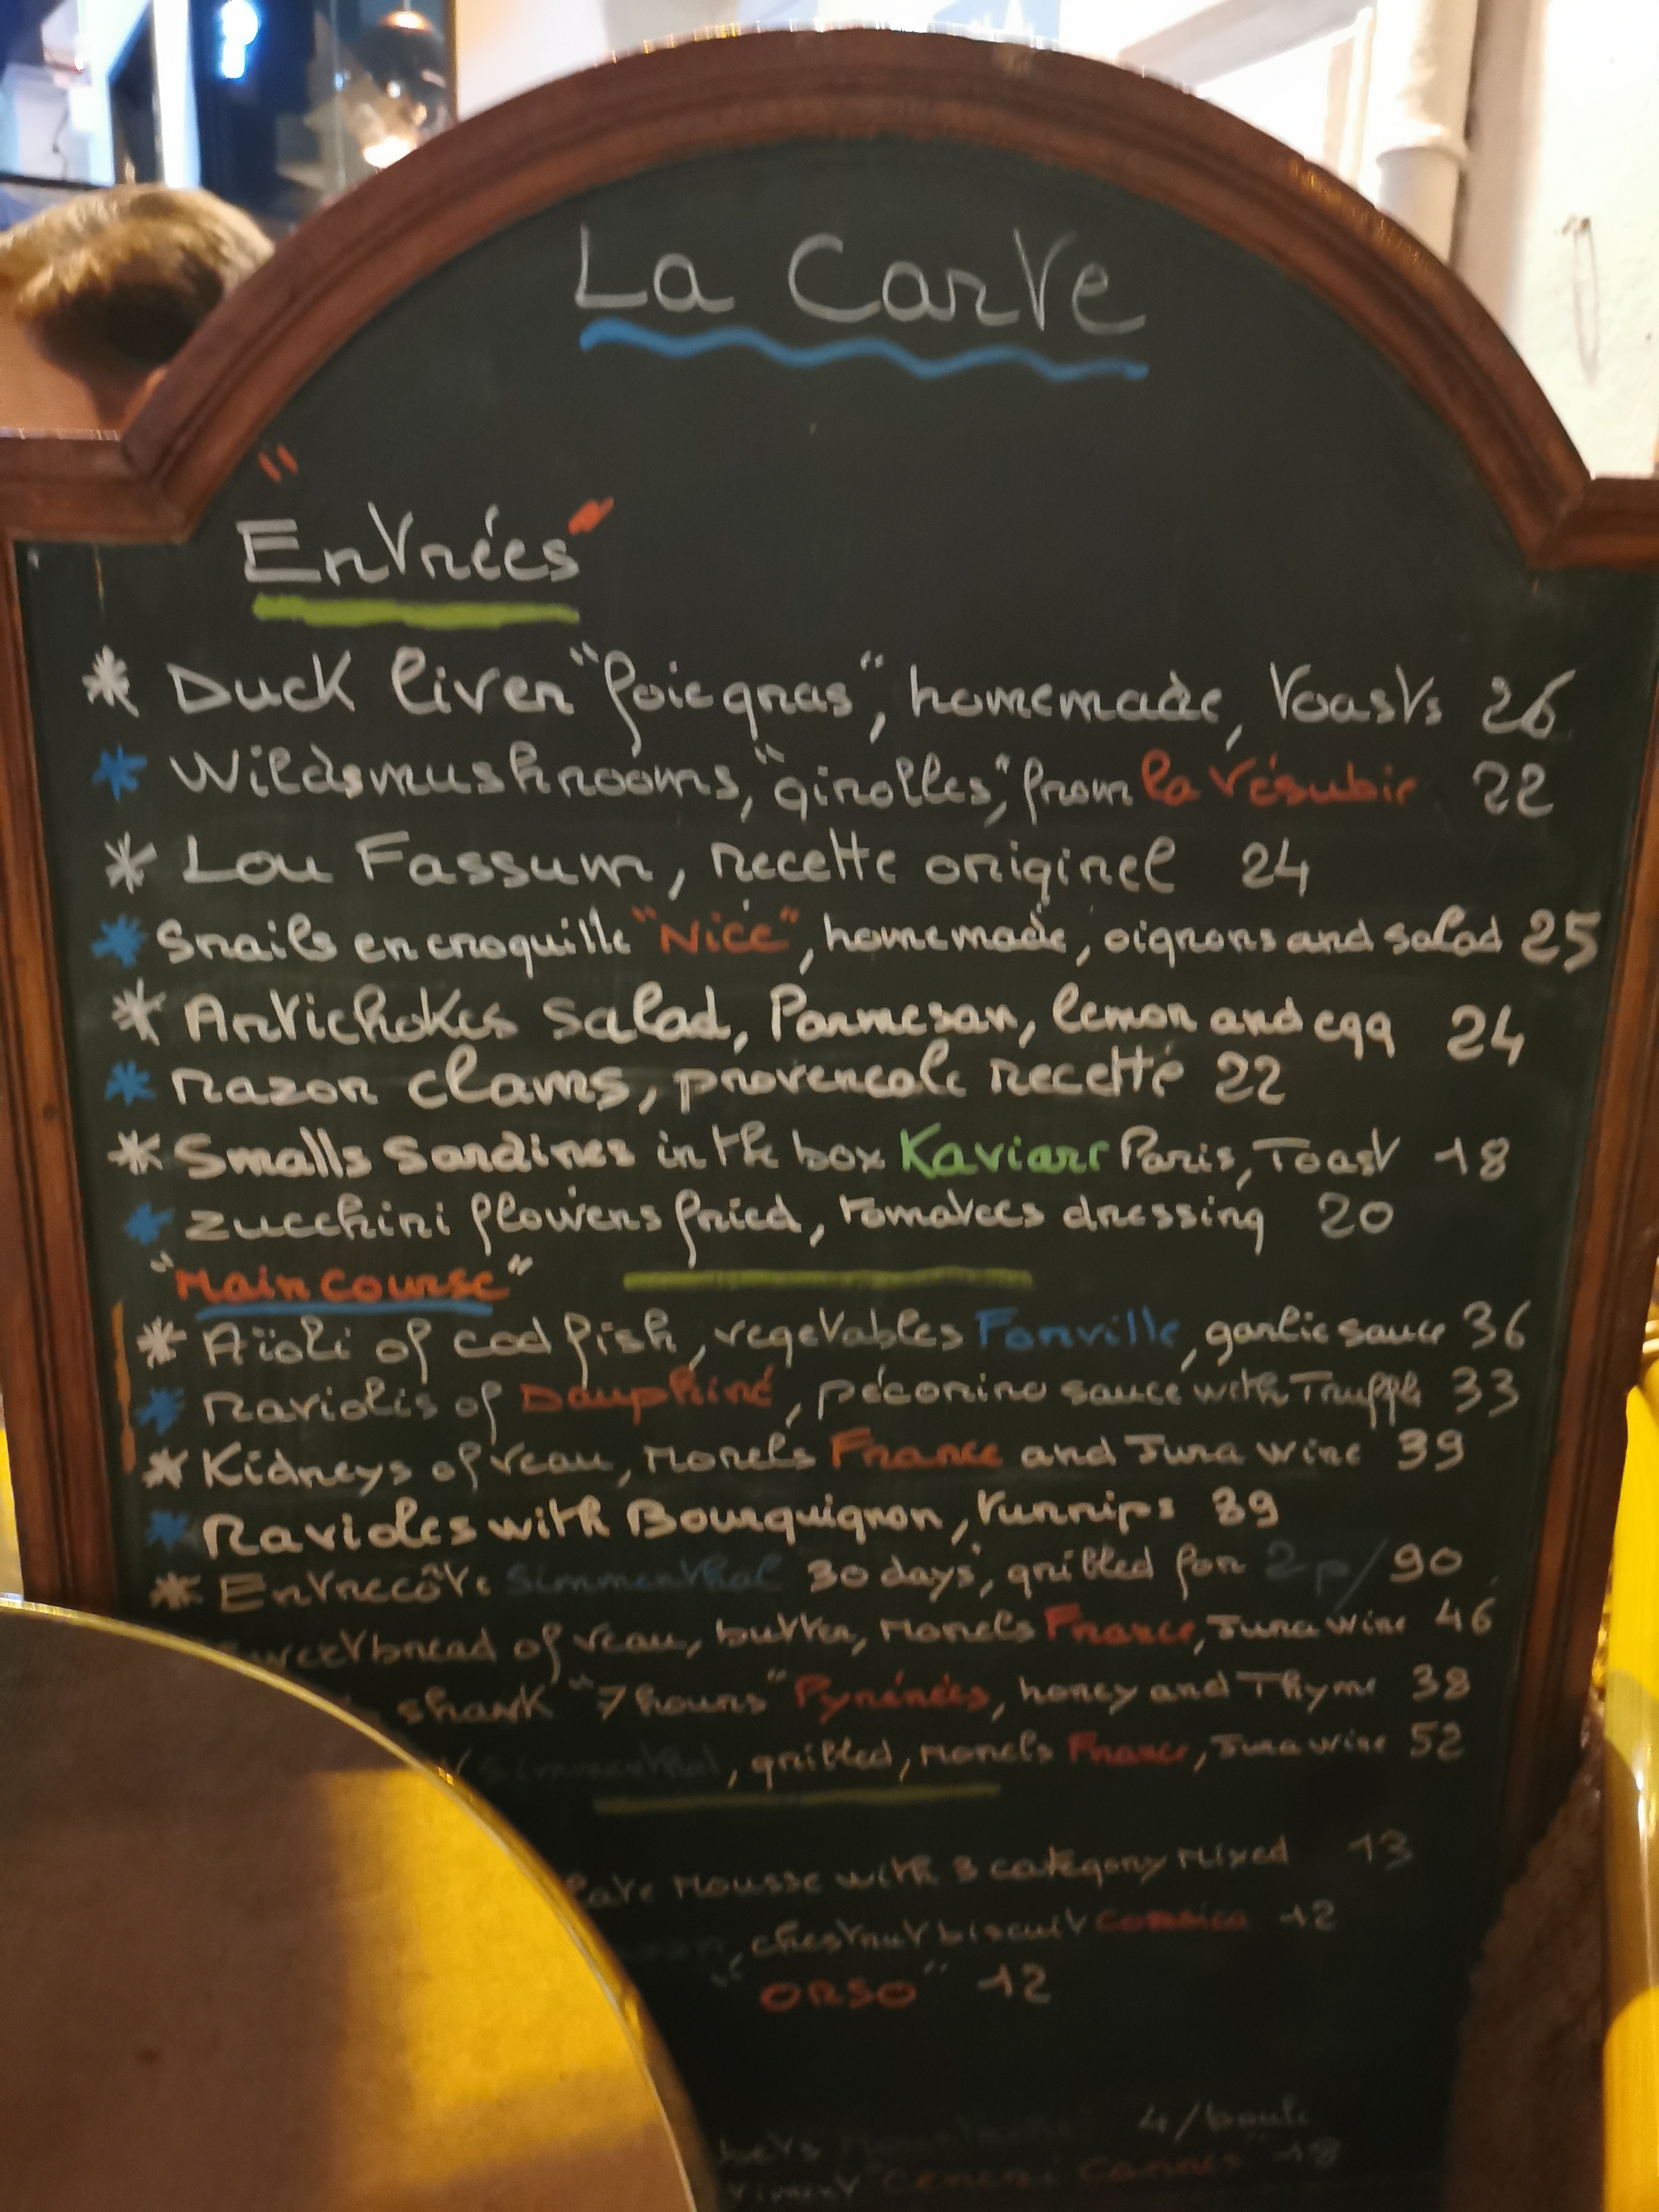 La Carte
"Entrées"
* Duck liver "foie gras", homemade, toasts 26
* Wildsmushrooms, "girolles", from la Vésubie 22
* Lou Fassum, recette originel 24
* Snails en croquille "Nice", homemade, oignons and salad 25
* Artichokes salad, Parmesan, lemon and egg 24
* Razor clams, provencale recette 22
* Smalls Sardines in the box Kaviari Paris, Toast 18
* Zucchini flowers fried, tomatoes dressing 20
"Main course"
* Aïoli of cod fish, vegetables Fonville, garlic sauce 36
* Raviolis of Dauphiné, pécorino sauce with Truffle 33
* Kidneys of veau, Morels France and Jura wine 39
* Ravioles with Bourguignon, turnips 39
* Entrecôte Simmenthal 30 days, grilled for 2p/90
sweetbread of veau, butter, Morels France, Jura wine 46
shank "7 hours" Pyrénées, honey and Thyme 38
Simmenthal, grilled, Morels France, Jura wine 52
late Mousse with 3 category Mixed 13
, chestnut biscuit Corsica 12
"ORSO" 12
bets 4/boule
18